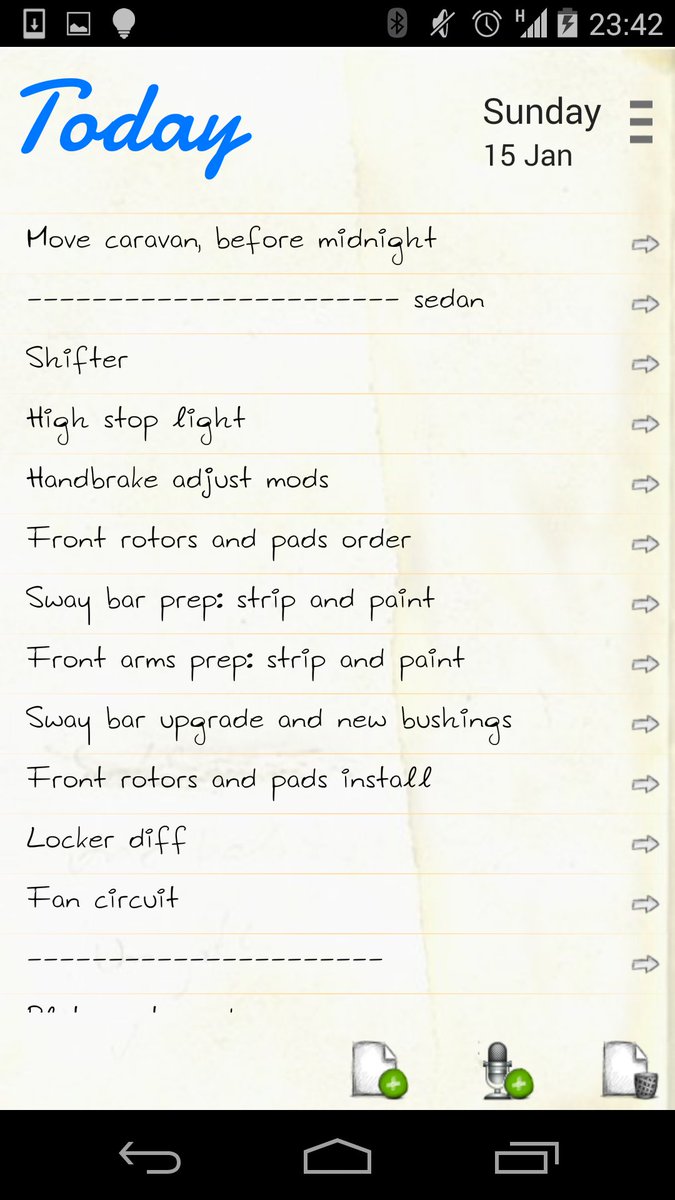 H 23:42
Today
Sunday
15 Jan
Move caravan, before midnight
----------------------- sedan
Shifter
High stop light
Handbrake adjust mods
Front rotors and pads order
Sway bar prep: strip and paint
Front arms prep: strip and paint
Sway bar upgrade and new bushings
Front rotors and pads install
Locker diff
Fan circuit
----------------------